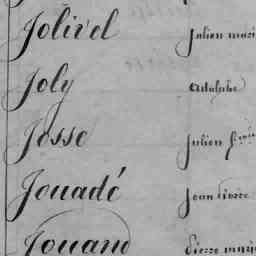 Jolivel Julien marie
Joly Adolphe
Josse Julien f.çois
Jouadé Jean Pierre
Jouand Pierre marie